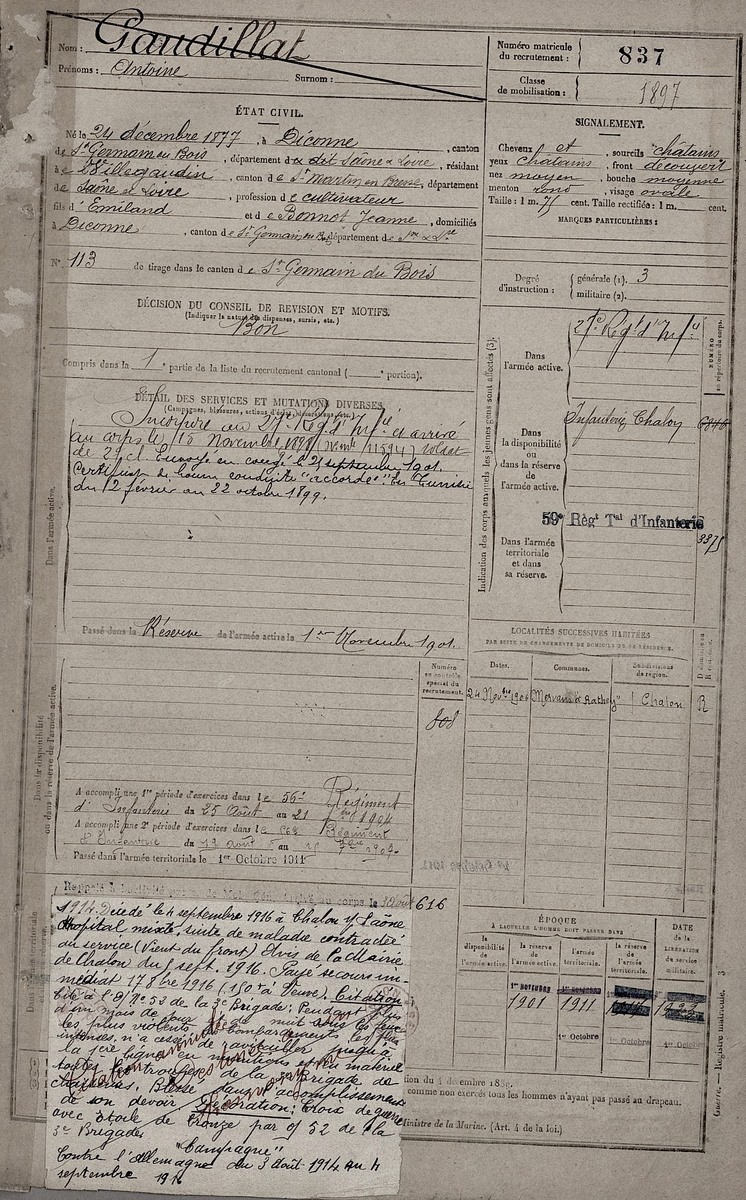 Nom : Gaudillat
Prénoms : Antoine Surnom :
Numéro matricule du recrutement : 837
Classe de mobilisation : 1897
ÉTAT CIVIL.
Né le 24 décembre 1877, à Diconne, canton
de St Germain du Bois, département de Saône & Loire, résidant
à Villegaudin, canton de St Martin en Bresse, département
de Saône et Loire, profession de cultivateur
fils d'Emiland et de Bonnot Jeanne, domiciliés
à Diconne, canton de St Germain du Bois, département de Sne & Lre
N° 113 de tirage dans le canton de St Germain du Bois
SIGNALEMENT.
Cheveux et , sourcils chatains
yeux chatains, front découvert
nez moyen, bouche moyenne
menton rond, visage ovale
Taille : 1 m. 75 cent. Taille rectifiée : 1 m. cent.
MARQUES PARTICULIÈRES :
Degré d'instruction : générale (1). 3
militaire (2).
DÉCISION DU CONSEIL DE REVISION ET MOTIFS.
(Indiquer la nature des dispenses, sursis, etc.)
Bon
Compris dans la 1e partie de la liste du recrutement cantonal ( e portion).
DÉTAIL DES SERVICES ET MUTATIONS DIVERSES
(Campagnes, blessures, actions d'éclat, décorations, etc.)
Incorporé au 27e Rég d'Infie et arrivé
au corps le 15 Novembre 1898 (Nº mle 11594) soldat
de 2e cl. Envoyé en congé le 21 septembre 1901.
Certificat de bonne conduite "accordé". En Tunisie
du 12 février au 22 octobre 1899.
Passé dans la Réserve de l'armée active le 1er Novembre 1901.
Dans l'armée active.
Indication des corps auxquels les jeunes gens sont affectés (3).
NUMÉRO au répertoire du corps.
Dans l'armée active. 27e Rég d'Infie
Dans la disponibilité ou dans la réserve de l'armée active. Infanterie Chalon 6846
59e Règt Tal d'Infanterie
Dans l'armée territoriale et dans sa réserve.
LOCALITÉS SUCCESSIVES HABITÉES
PAR SUITE DE CHANGEMENTS DE DOMICILE OU DE RÉSIDENCE.
Dates. Communes. Subdivisions de région. D. domicile R. résid.
24 Nov. 1906 Chalon R
Numéro au contrôle spécial du recrutement.
808
Dans la disponibilité ou dans la réserve de l'armée active.
A accompli une 1re période d'exercices dans le 56e Régiment
d'Infanterie du 25 Août au 21 7bre 1904
A accompli une 2e période d'exercices dans le Régiment
d'Infanterie du 19 août au 7bre 1907
Passé dans l'armée territoriale le 1er Octobre 1911
616
1914. Décédé le 4 septembre 1916 à Chalon s/ Saône
Hopital mixte suite de maladie contractée
au service (Vient du front) Avis de la Mairie
de Chalon du 5 sept. 1916. Payé secours im-
médiat 17 8bre 1916 (150f à Veuve). Citation
Cité à l'O/ Nº 53 de la 3e Brigade: Pendant plus
d'un mois de jour et nuit sous les feux
les plus violents, bombardements les plus
intenses, n'a cessé de ravitailler jusqu'à
la 1ère ligne en munitions et en matériel
toutes les troupes de la Brigade de
chasseurs. Blessé dans l'accomplissement
de son devoir. Décoration: Croix de guerre
avec étoile de bronze par O/ 52 de la
3e Brigade
"Campagne"
Contre l'Allemagne du 3 Août 1914 au 4
septembre 1916
ÉPOQUE
À LAQUELLE L'HOMME DOIT PASSER DANS
la disponibilité de l'armée active. la réserve de l'armée active. l'armée territoriale. la réserve de l'armée territoriale.
DATE de la LIBÉRATION du service militaire.
1er NOVEMBRE 1901
1911
1er Octobre
comme non exercés tous les hommes n'ayant pas passé au drapeau.
Ministre de la Marine. (Art. 4 de la loi.)
Guerre. — Registre matricule. 3